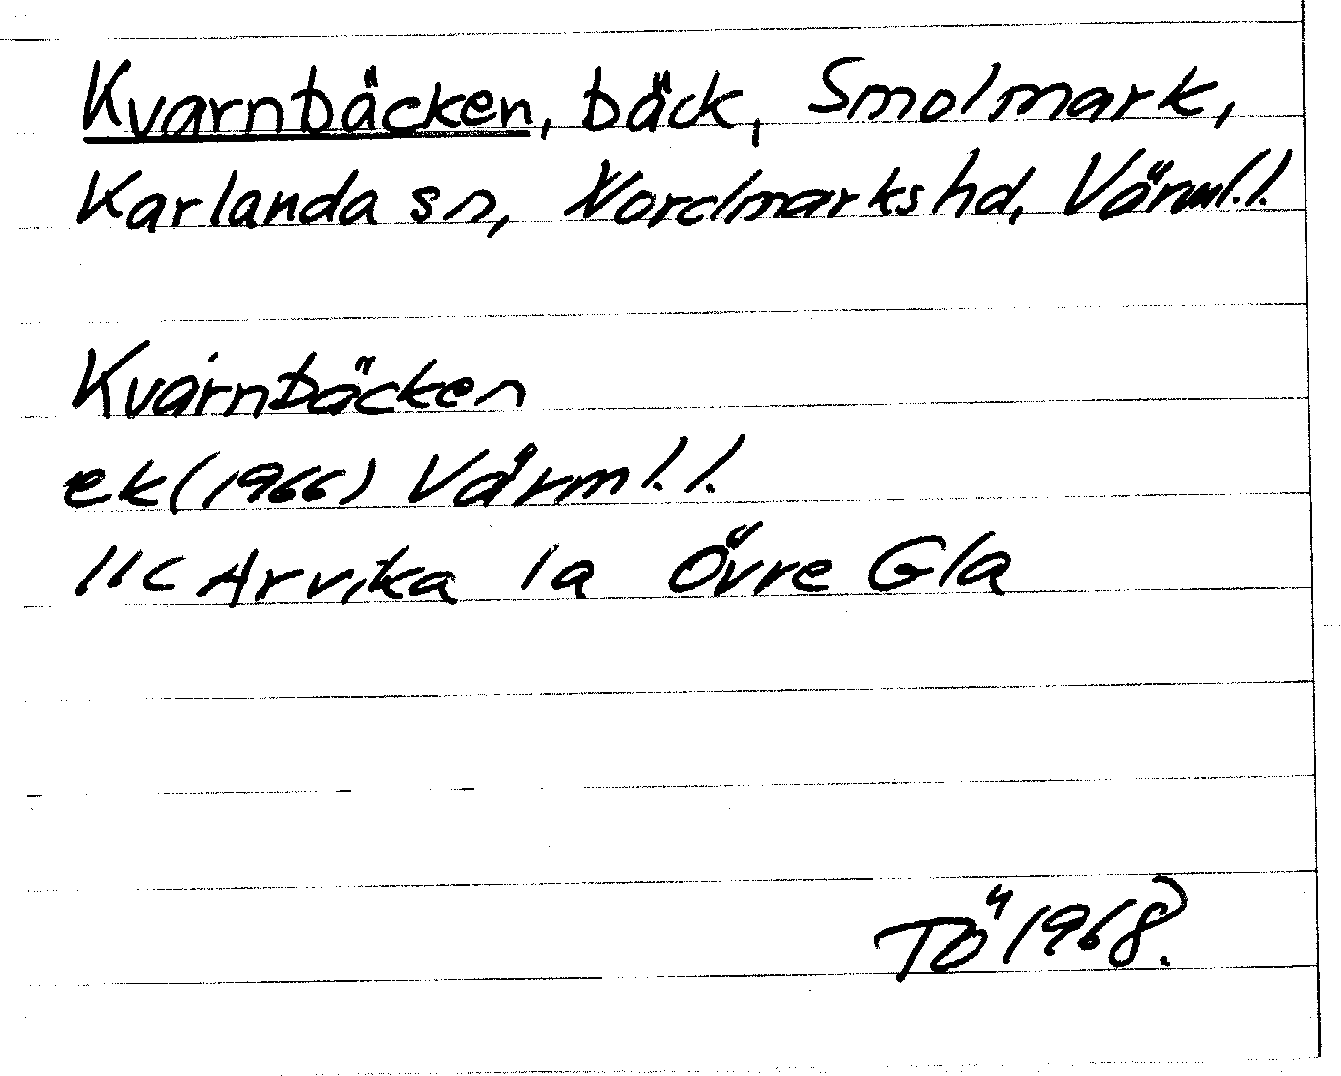 Kvarnbäcken, bäck, Smolmark,
Karlanda sn, Nordmarks hd, Värml.l.
Kvarnbäcken
ek (1966) Värml.l.
11C Arvika 1a Övre Gla
TÖ 1968.